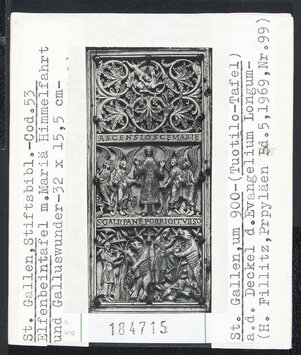 St. Gallen,Stiftsbibl.-Cod.53
Elfenbeintafel m.Mariä Himmelfahrt
und Galluswunder-32 x 15,5 cm-
ASCENSIO SCE MARIE
S GALL PANE PORRIGIT VRSO
184715
St. Gallen,um 900-(Tuotilo-Tafel)
a.d. Deckel d.Evangelium Longum-
(H. Fillitz,Prpyläen Bd.5,1969,Nr.99)